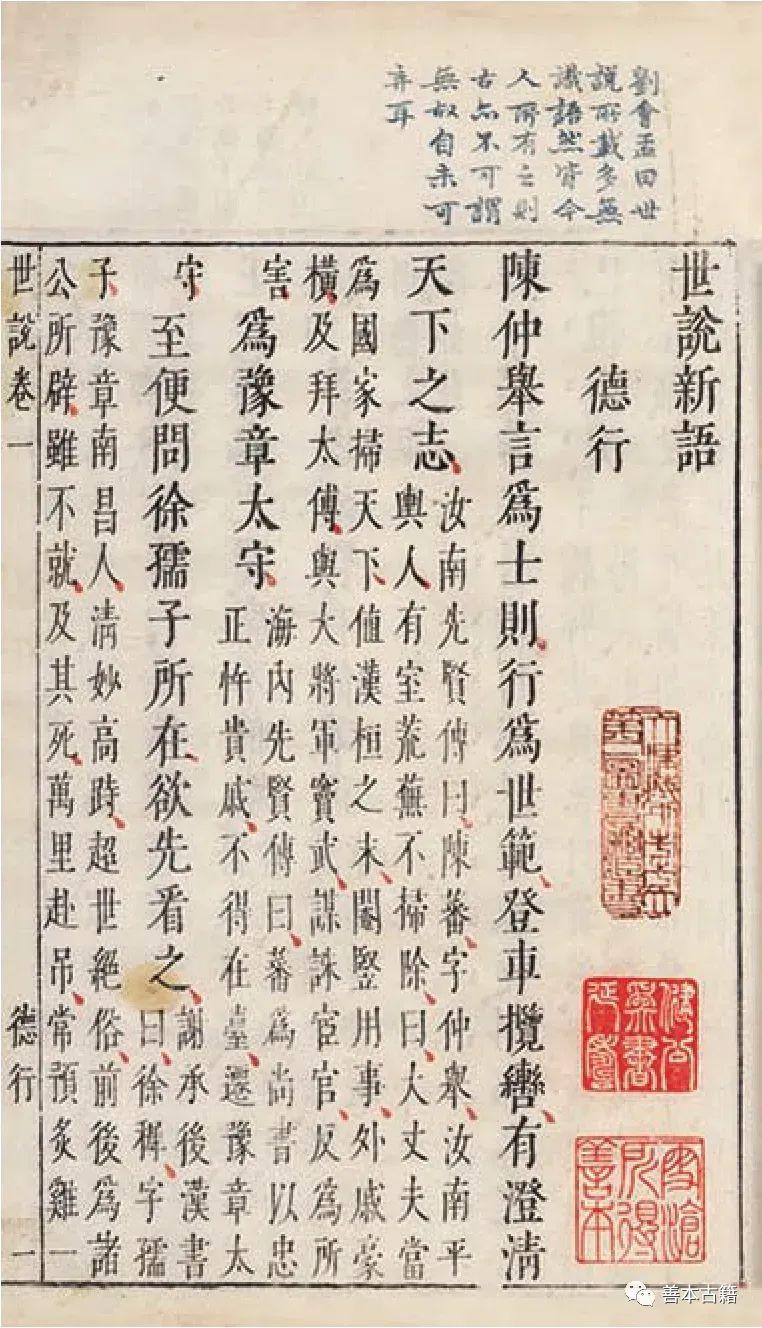 劉會孟曰世
說所載多無
議語然皆今
人所有之則
古亦不可謂
無故自未可
弃耳
世說新語
德行
陳仲舉言爲士則行爲世範登車攬轡有澄清
天下之志
汝南先賢傳曰陳蕃字仲舉汝南平
輿人有室荒蕪不掃除曰大丈夫當
爲國家掃天下値漢桓之末閹豎用事外戚豪
橫及拜太傅與大將軍竇武謀誅宦官反爲所
害
爲豫章太守
海內先賢傳曰蕃爲尚書以忠
正忤貴戚不得在臺遷豫章太
守
至便問徐孺子所在欲先看之
謝承後漢書
曰徐穉字孺
子豫章南昌人淸妙高跱超世絕俗前後爲諸
公所辟雖不就及其死萬里赴吊常預炙雞一
世說卷一 德行 一
雪滄所得善本
善本古籍